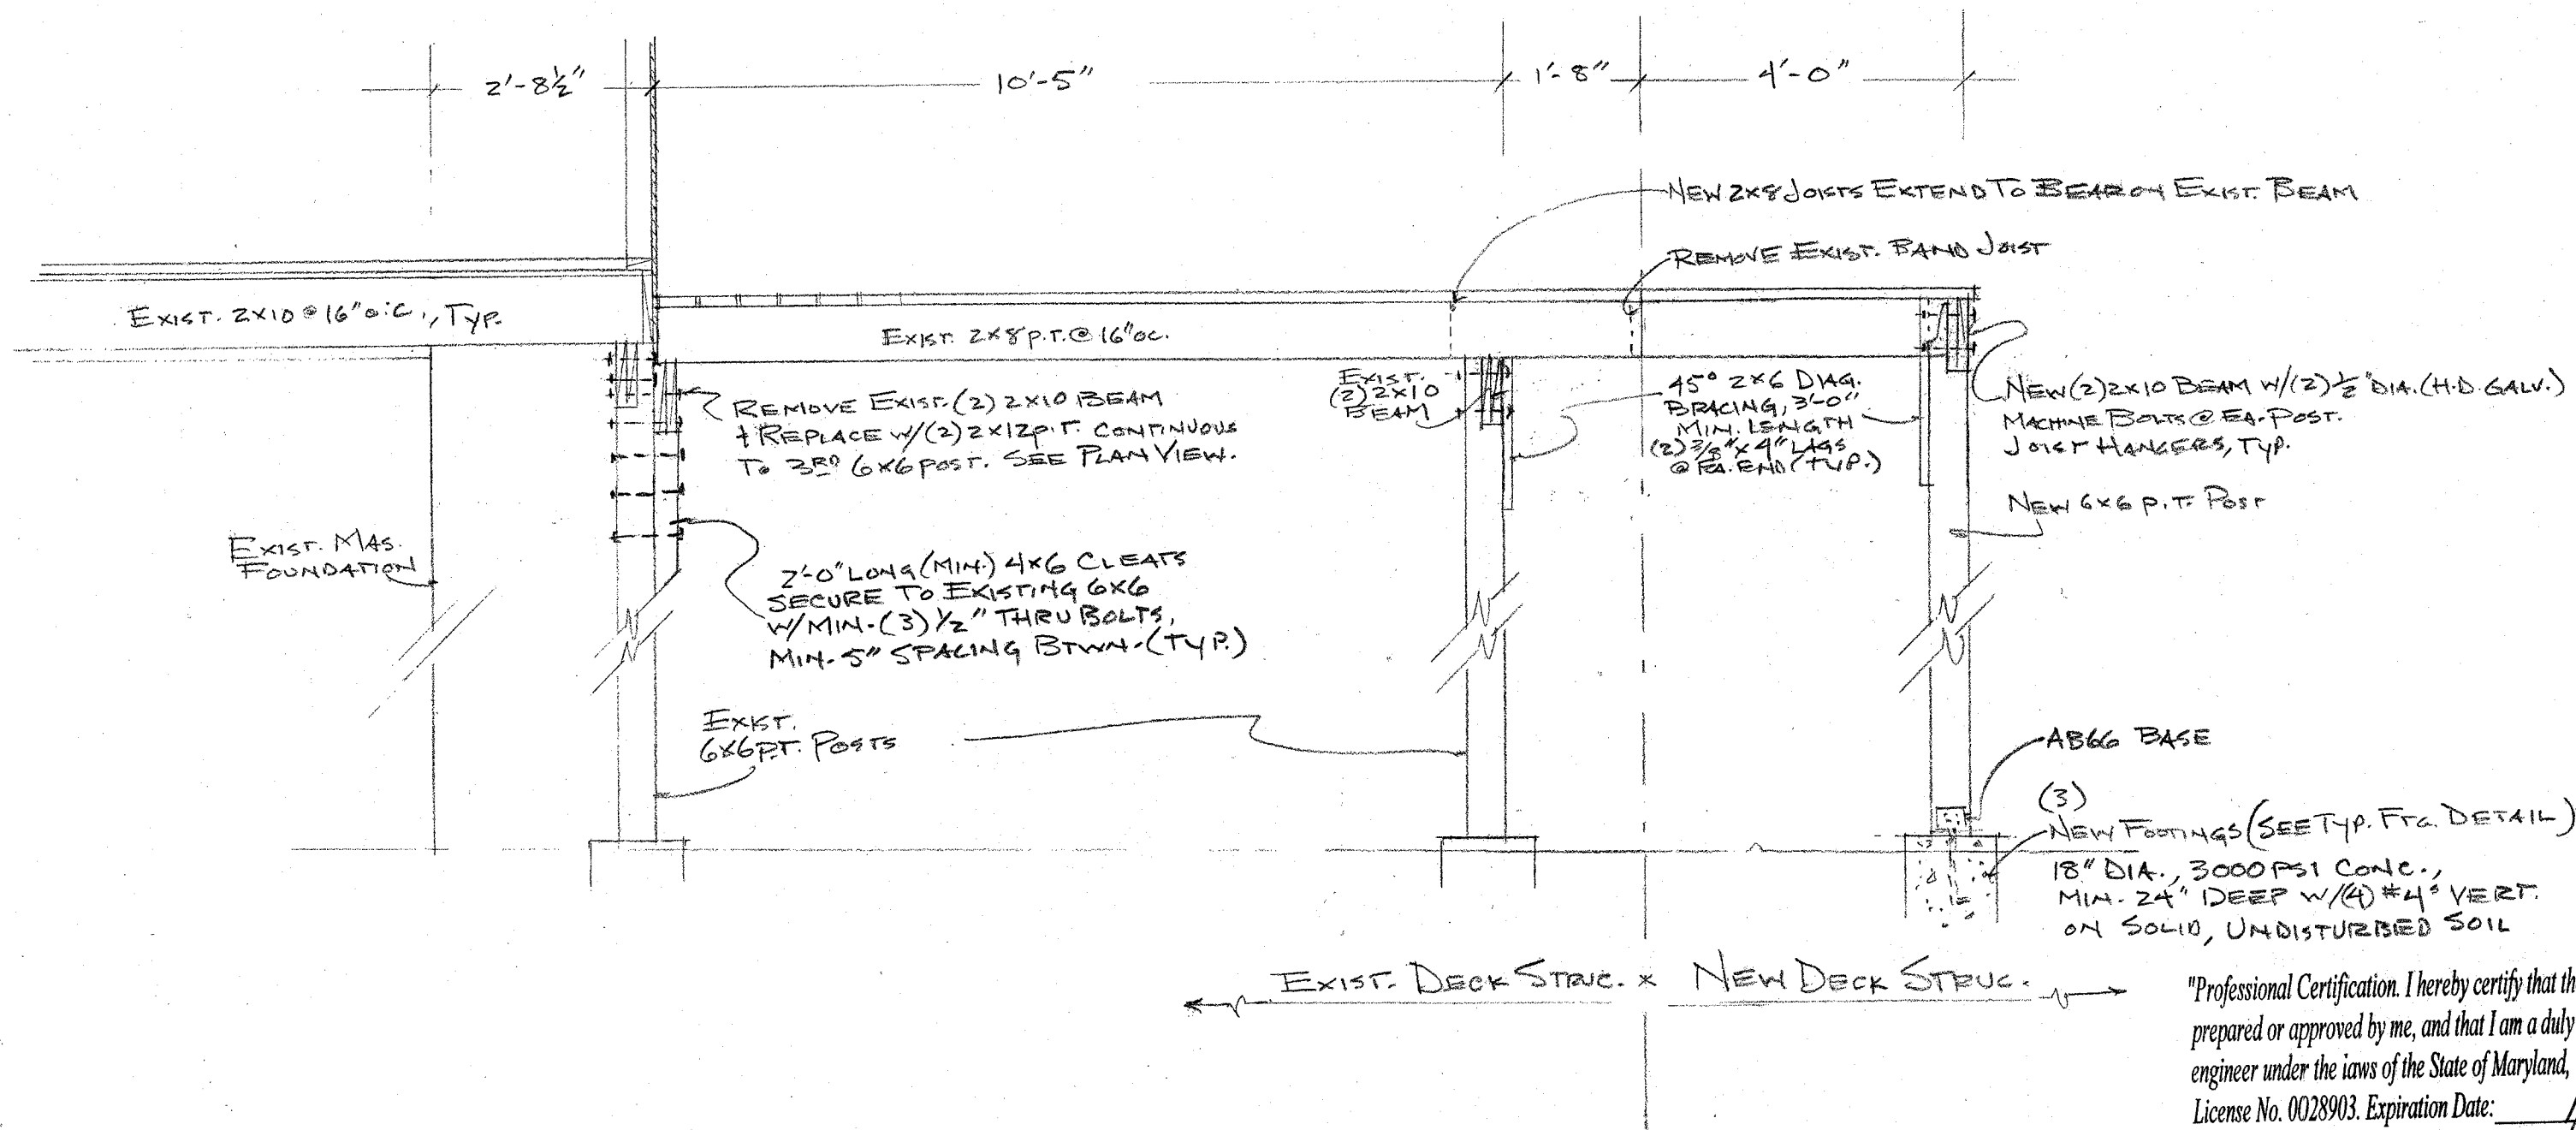 2'-8½"
10'-5"
1'-8"
4'-0"
NEW 2X8 JOISTS EXTEND TO BEAR ON EXIST. BEAM
REMOVE EXIST. BAND JOIST
EXIST. 2X10 @ 16" O.C., TYP.
EXIST. 2X8 P.T. @ 16" OC.
REMOVE EXIST. (2) 2X10 BEAM
+ REPLACE W/(2) 2X12 P.T. CONTINUOUS
TO 3RD 6X6 POST. SEE PLAN VIEW.
EXIST.
(2) 2X10
BEAM
45° 2X6 DIAG.
BRACING, 3'-0"
MIN. LENGTH
(2) 3/8" X 4" LAGS
@ EA. END (TYP.)
NEW (2) 2X10 BEAM W/(2) ½" DIA. (H.D. GALV.)
MACHINE BOLTS @ EA. POST.
JOIST HANGERS, TYP.
NEW 6X6 P.T. POST
EXIST. MAS.
FOUNDATION
2'-0" LONG (MIN.) 4X6 CLEATS
SECURE TO EXISTING 6X6
W/ MIN. (3) ½" THRU BOLTS,
MIN. 5" SPACING BTWN. (TYP.)
EXIST.
6X6 P.T. POSTS
AB66 BASE
(3)
NEW FOOTINGS (SEE TYP. FTG. DETAIL)
18" DIA., 3000 PSI CONC.,
MIN. 24" DEEP W/(4) #4s VERT.
ON SOLID, UNDISTURBED SOIL
EXIST. DECK STRUC. x NEW DECK STRUC.
"Professional Certification. I hereby certify that th
prepared or approved by me, and that I am a duly
engineer under the iaws of the State of Maryland,
License No. 0028903. Expiration Date: